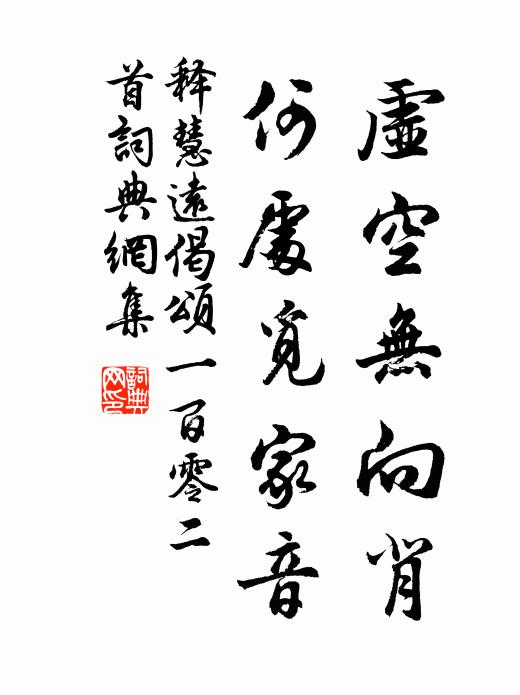 虛空無向背
何處覓家音
释慧遠偈頌一百零二
首詞典網集
詞典网印